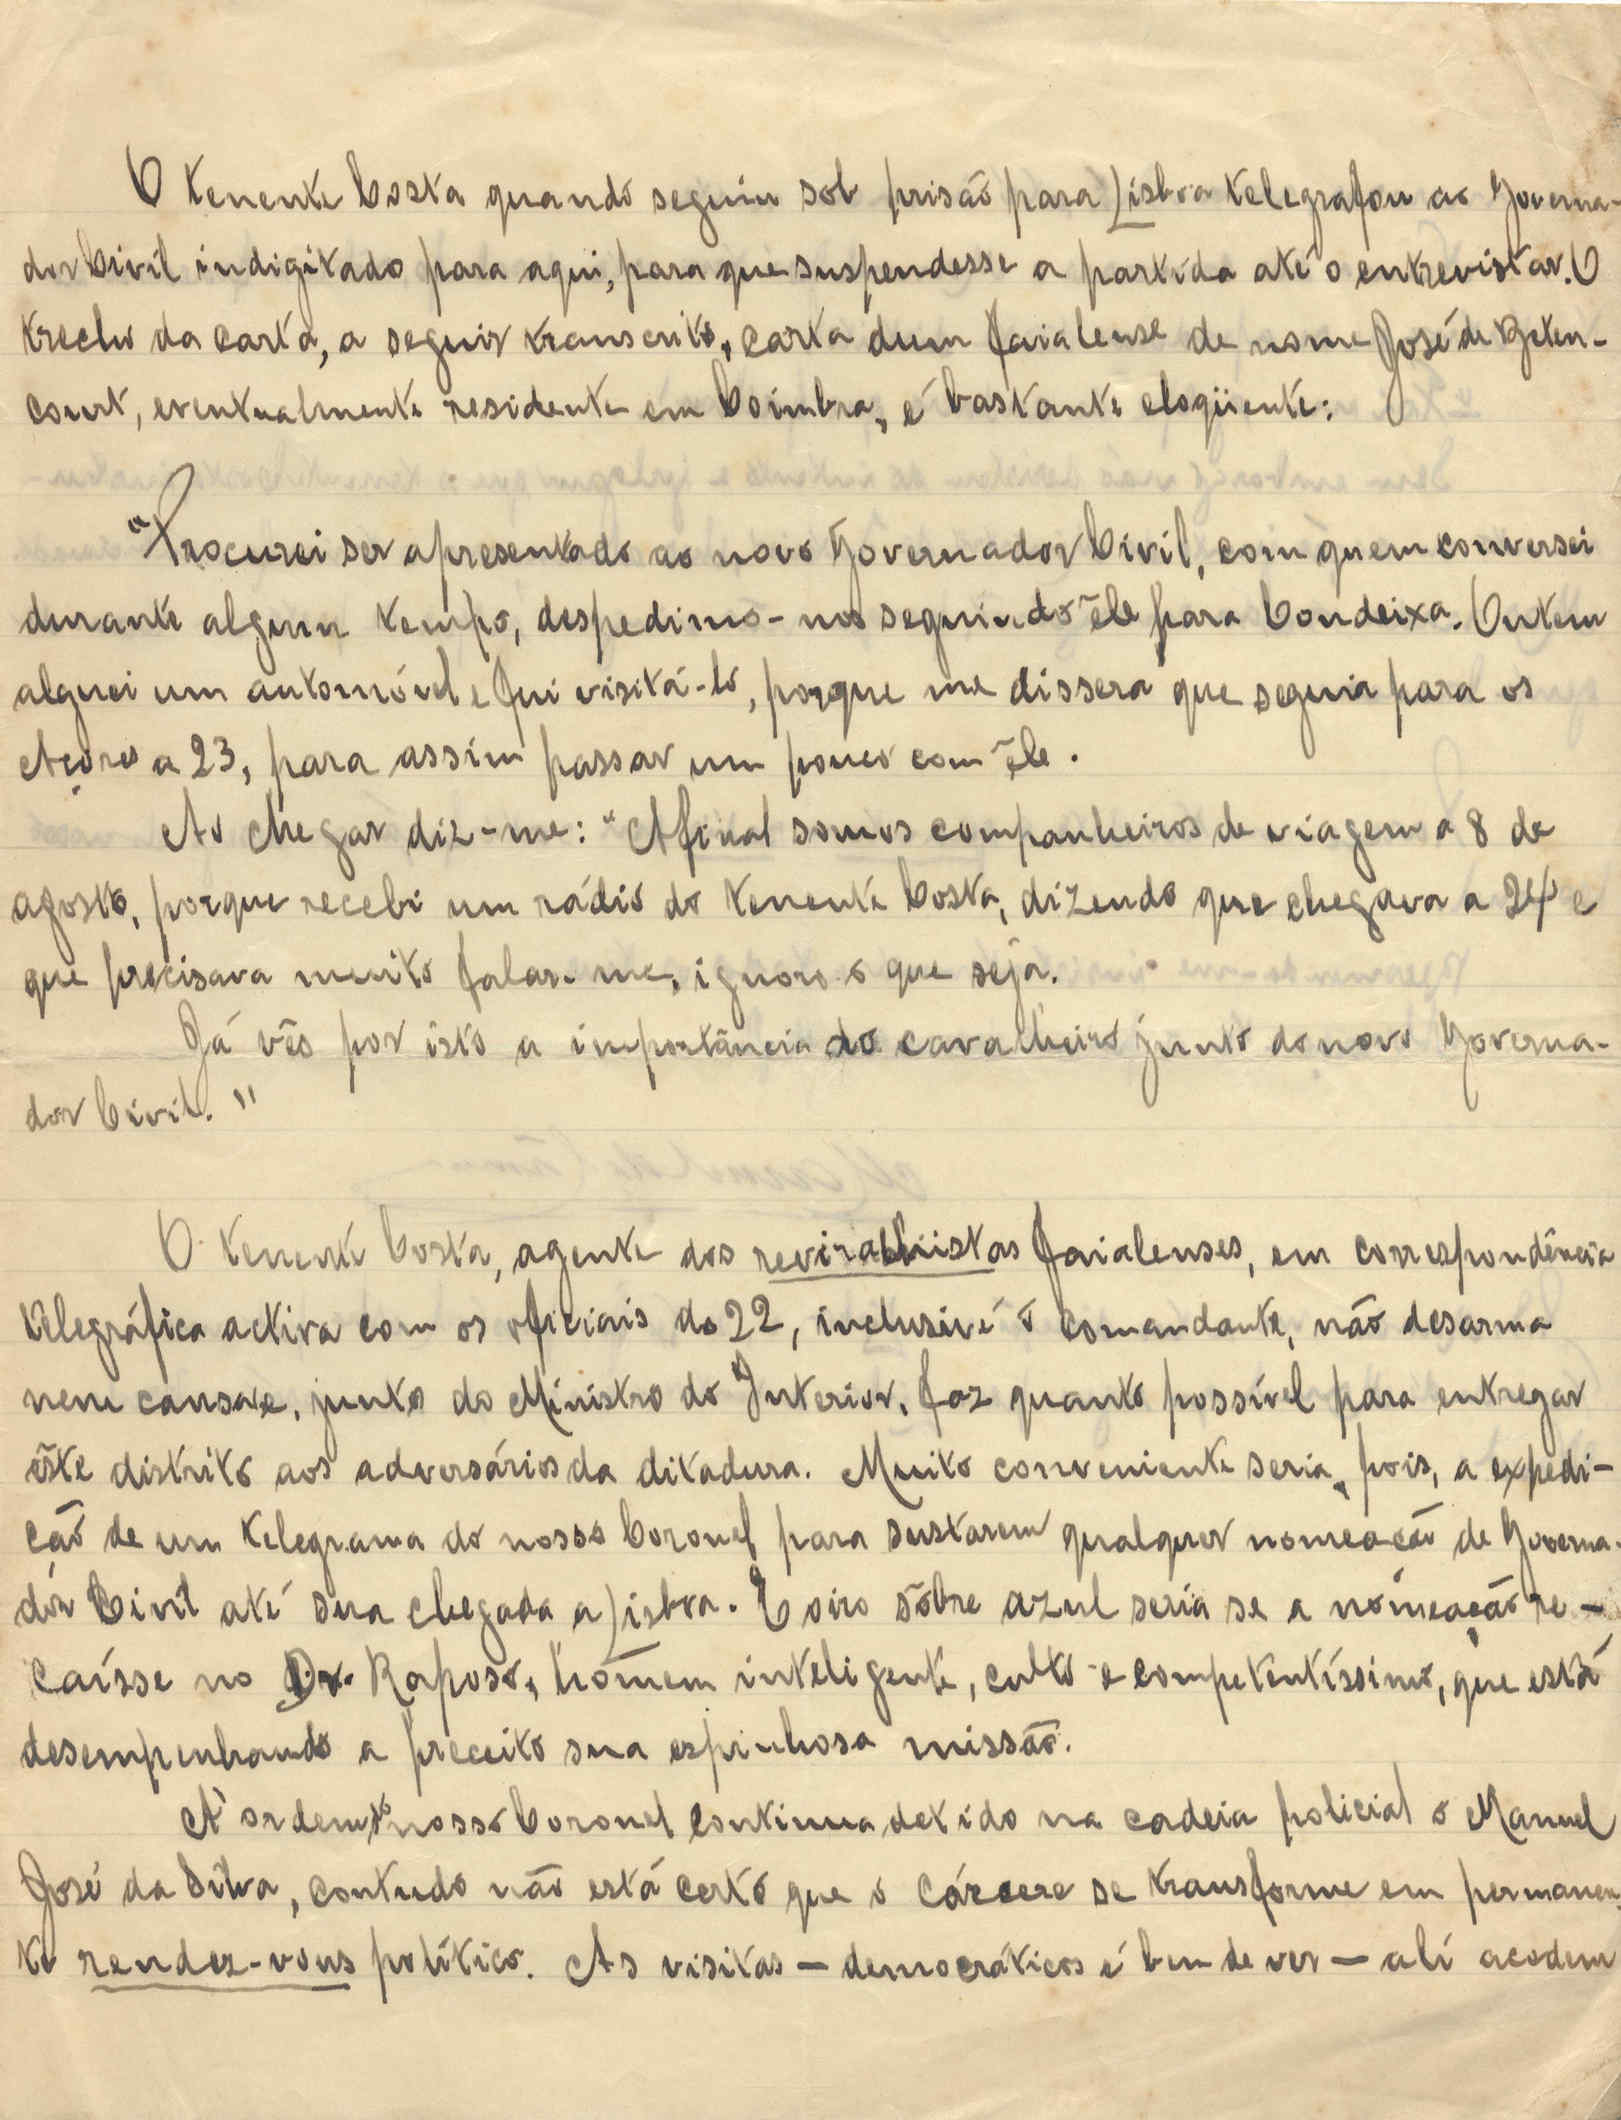 O tenente Costa quando seguiu sob prisão para Lisboa telegrafou ao Governa-
dor Civil indigitado para aqui, para que suspendesse a partida até o entrevistar. O
trecho da carta, a seguir transcrito, carta dum faialense de nome José de Beten-
court, eventualmente residente em Coimbra, é bastante eloqüente:
"Procurei ser apresentado ao novo Governador Civil, com quem conversei
durante algum tempo, despedimo-nos seguindo êle para Condeixa. Ontem
alguei um automóvel e fui visitá-lo, porque me dissera que seguia para os
Açores a 23, para assim passar um pouco com êle.
Ao chegar diz-me: "Afinal somos companheiros de viagem a 8 de
agosto, porque recebi um rádio do tenente Costa, dizendo que chegava a 24 e
que precisava muito falar-me, ignoro o que seja.
Já vês por isto a importância do cavalheiro junto do novo Governa-
dor Civil."
O tenente Costa, agente dos reviralhistas faialenses, em correspondência
telegráfica activa com os oficiais do 22, inclusivé o comandante, não desarma
nem cansa e, junto do Ministro do Interior, faz quanto possível para entregar
êste distrito aos adversários da ditadura. Muito conveniente seria, pois, a expedi-
ção de um telegrama do nosso Coronel para sustarem qualquer nomeação de Governa-
dor Civil até sua chegada a Lisboa. E oiro sôbre azul seria se a nomeação re-
caísse no Dr. Raposo, homem inteligente, culto e competentíssimo, que está
desempenhando a preceito sua espinhosa missão.
À ordem do nosso Coronel continua detido na cadeia policial o Manuel
José da Silva, contudo não está certo que o cárcere se transforme em permanen-
te rendez-vous político. As visitas — democráticos é bem de ver — ali acodem